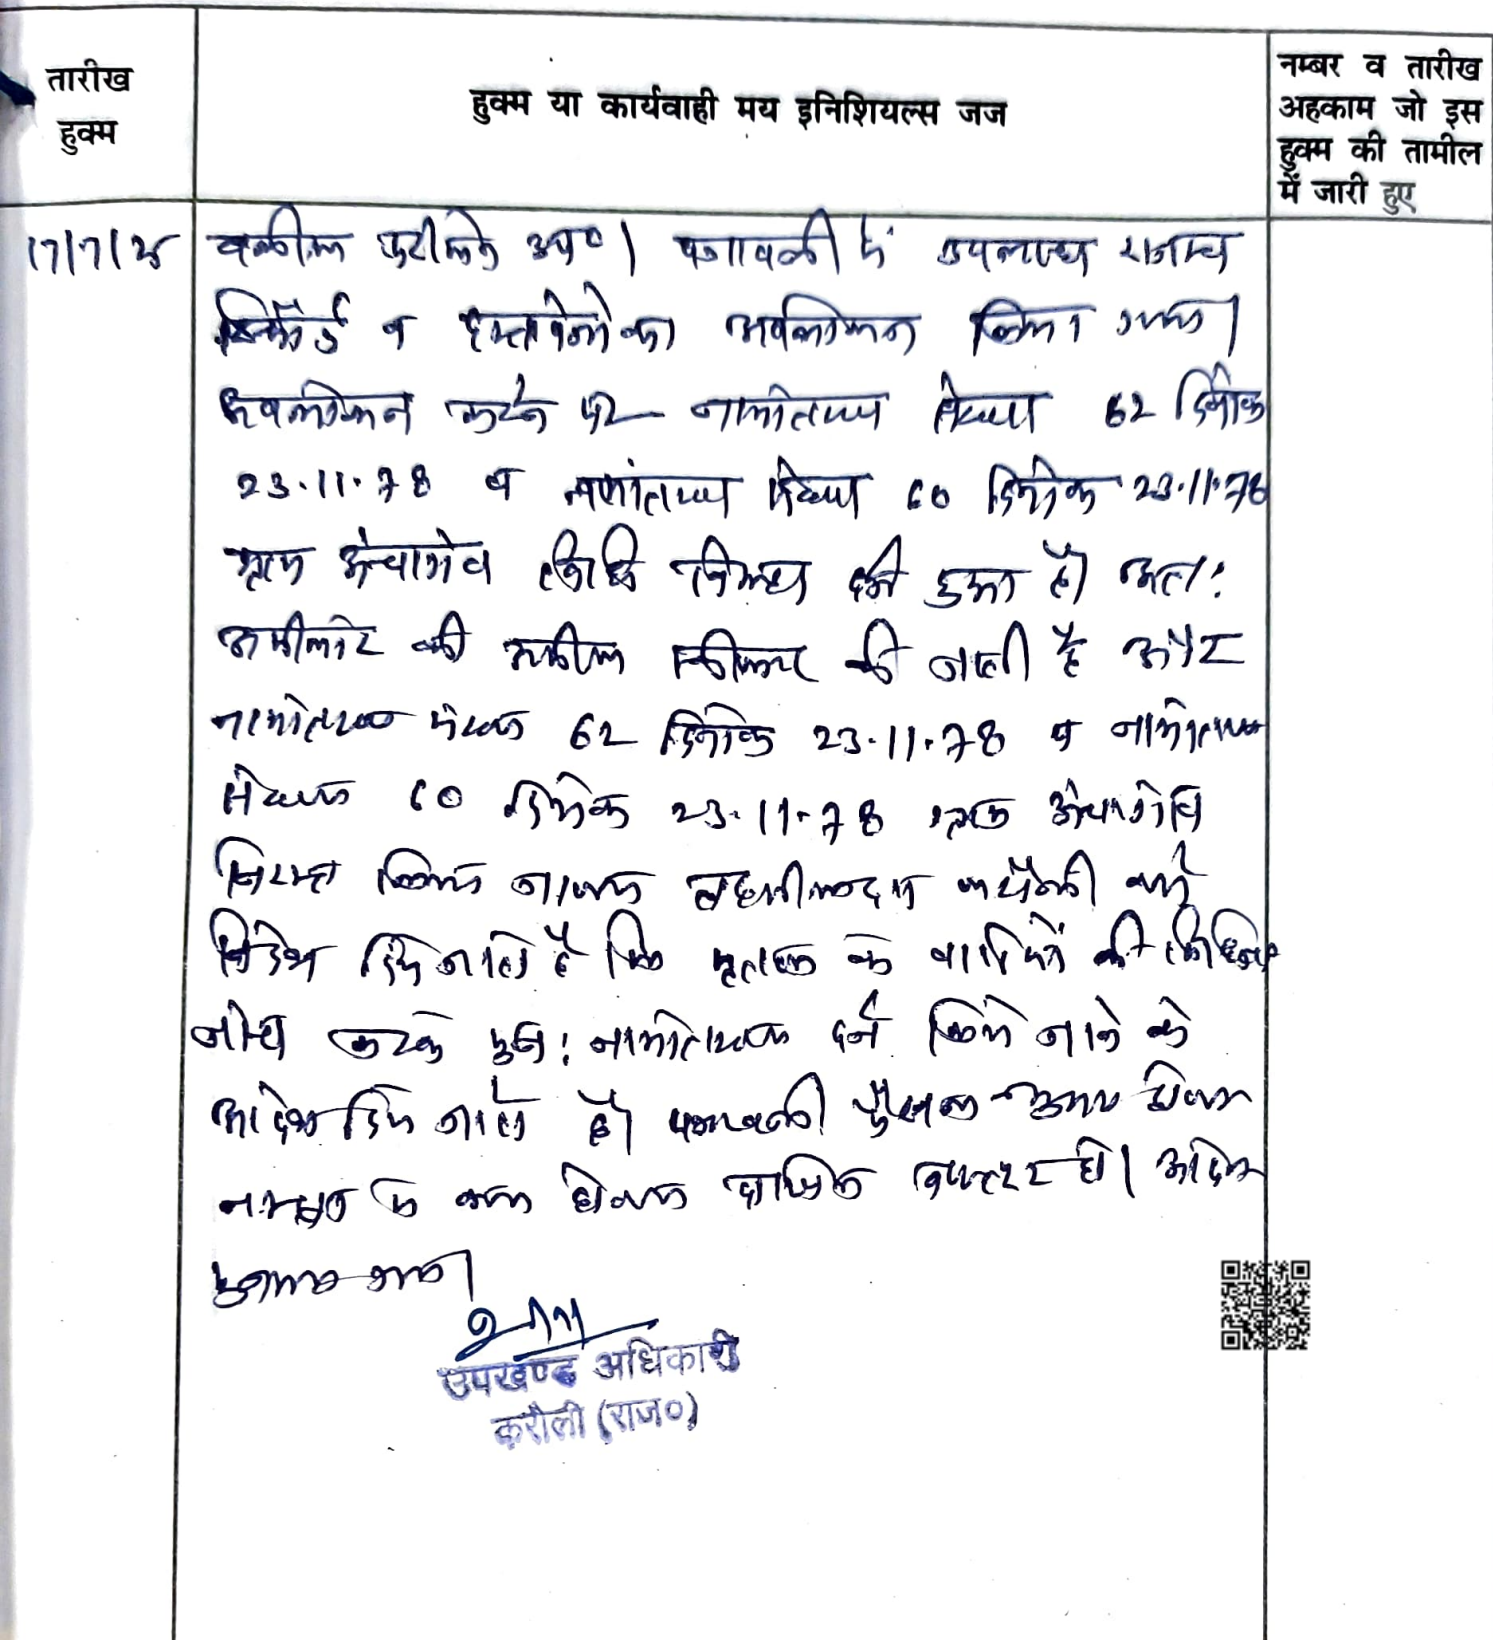 तारीख
हुक्म
हुक्म या कार्यवाही मय इनिशियल्स जज
नम्बर व तारीख
अहकाम जो इस
हुक्म की तामील
में जारी हुए
17/7/25
वकील फरीकेन उप०। पत्रावली में उपलब्ध राजस्व
रिकॉर्ड व दस्तावेजो का अवलोकन किया गया।
अवलोकन करने पर नामांतरण संख्या 62 दिनांक
23.11.78 व नामांतरण संख्या 60 दिनांक 23.11.78
ग्राम विधि विरुद्ध दर्ज हुआ है। अतः
अपीलांट की अपील स्वीकार की जाती है और
नामांतरण संख्या 62 दिनांक 23.11.78 व नामांतरण
संख्या 60 दिनांक 23.11.78 ग्राम
निरस्त किया जाकर तहसीलदार करौली को
निर्देश दिये जाते है कि मृतक के वारिसों की विधिवत
जांच करके पुनः नामांतरण दर्ज किये जाने के
आदेश दिये जाते है। पत्रावली फैसल शुमार होकर
नम्बर से कम होकर दाखिल दफ्तर हो। आदेश
सुनाया गया।
उपखण्ड अधिकारी
करौली (राज०)